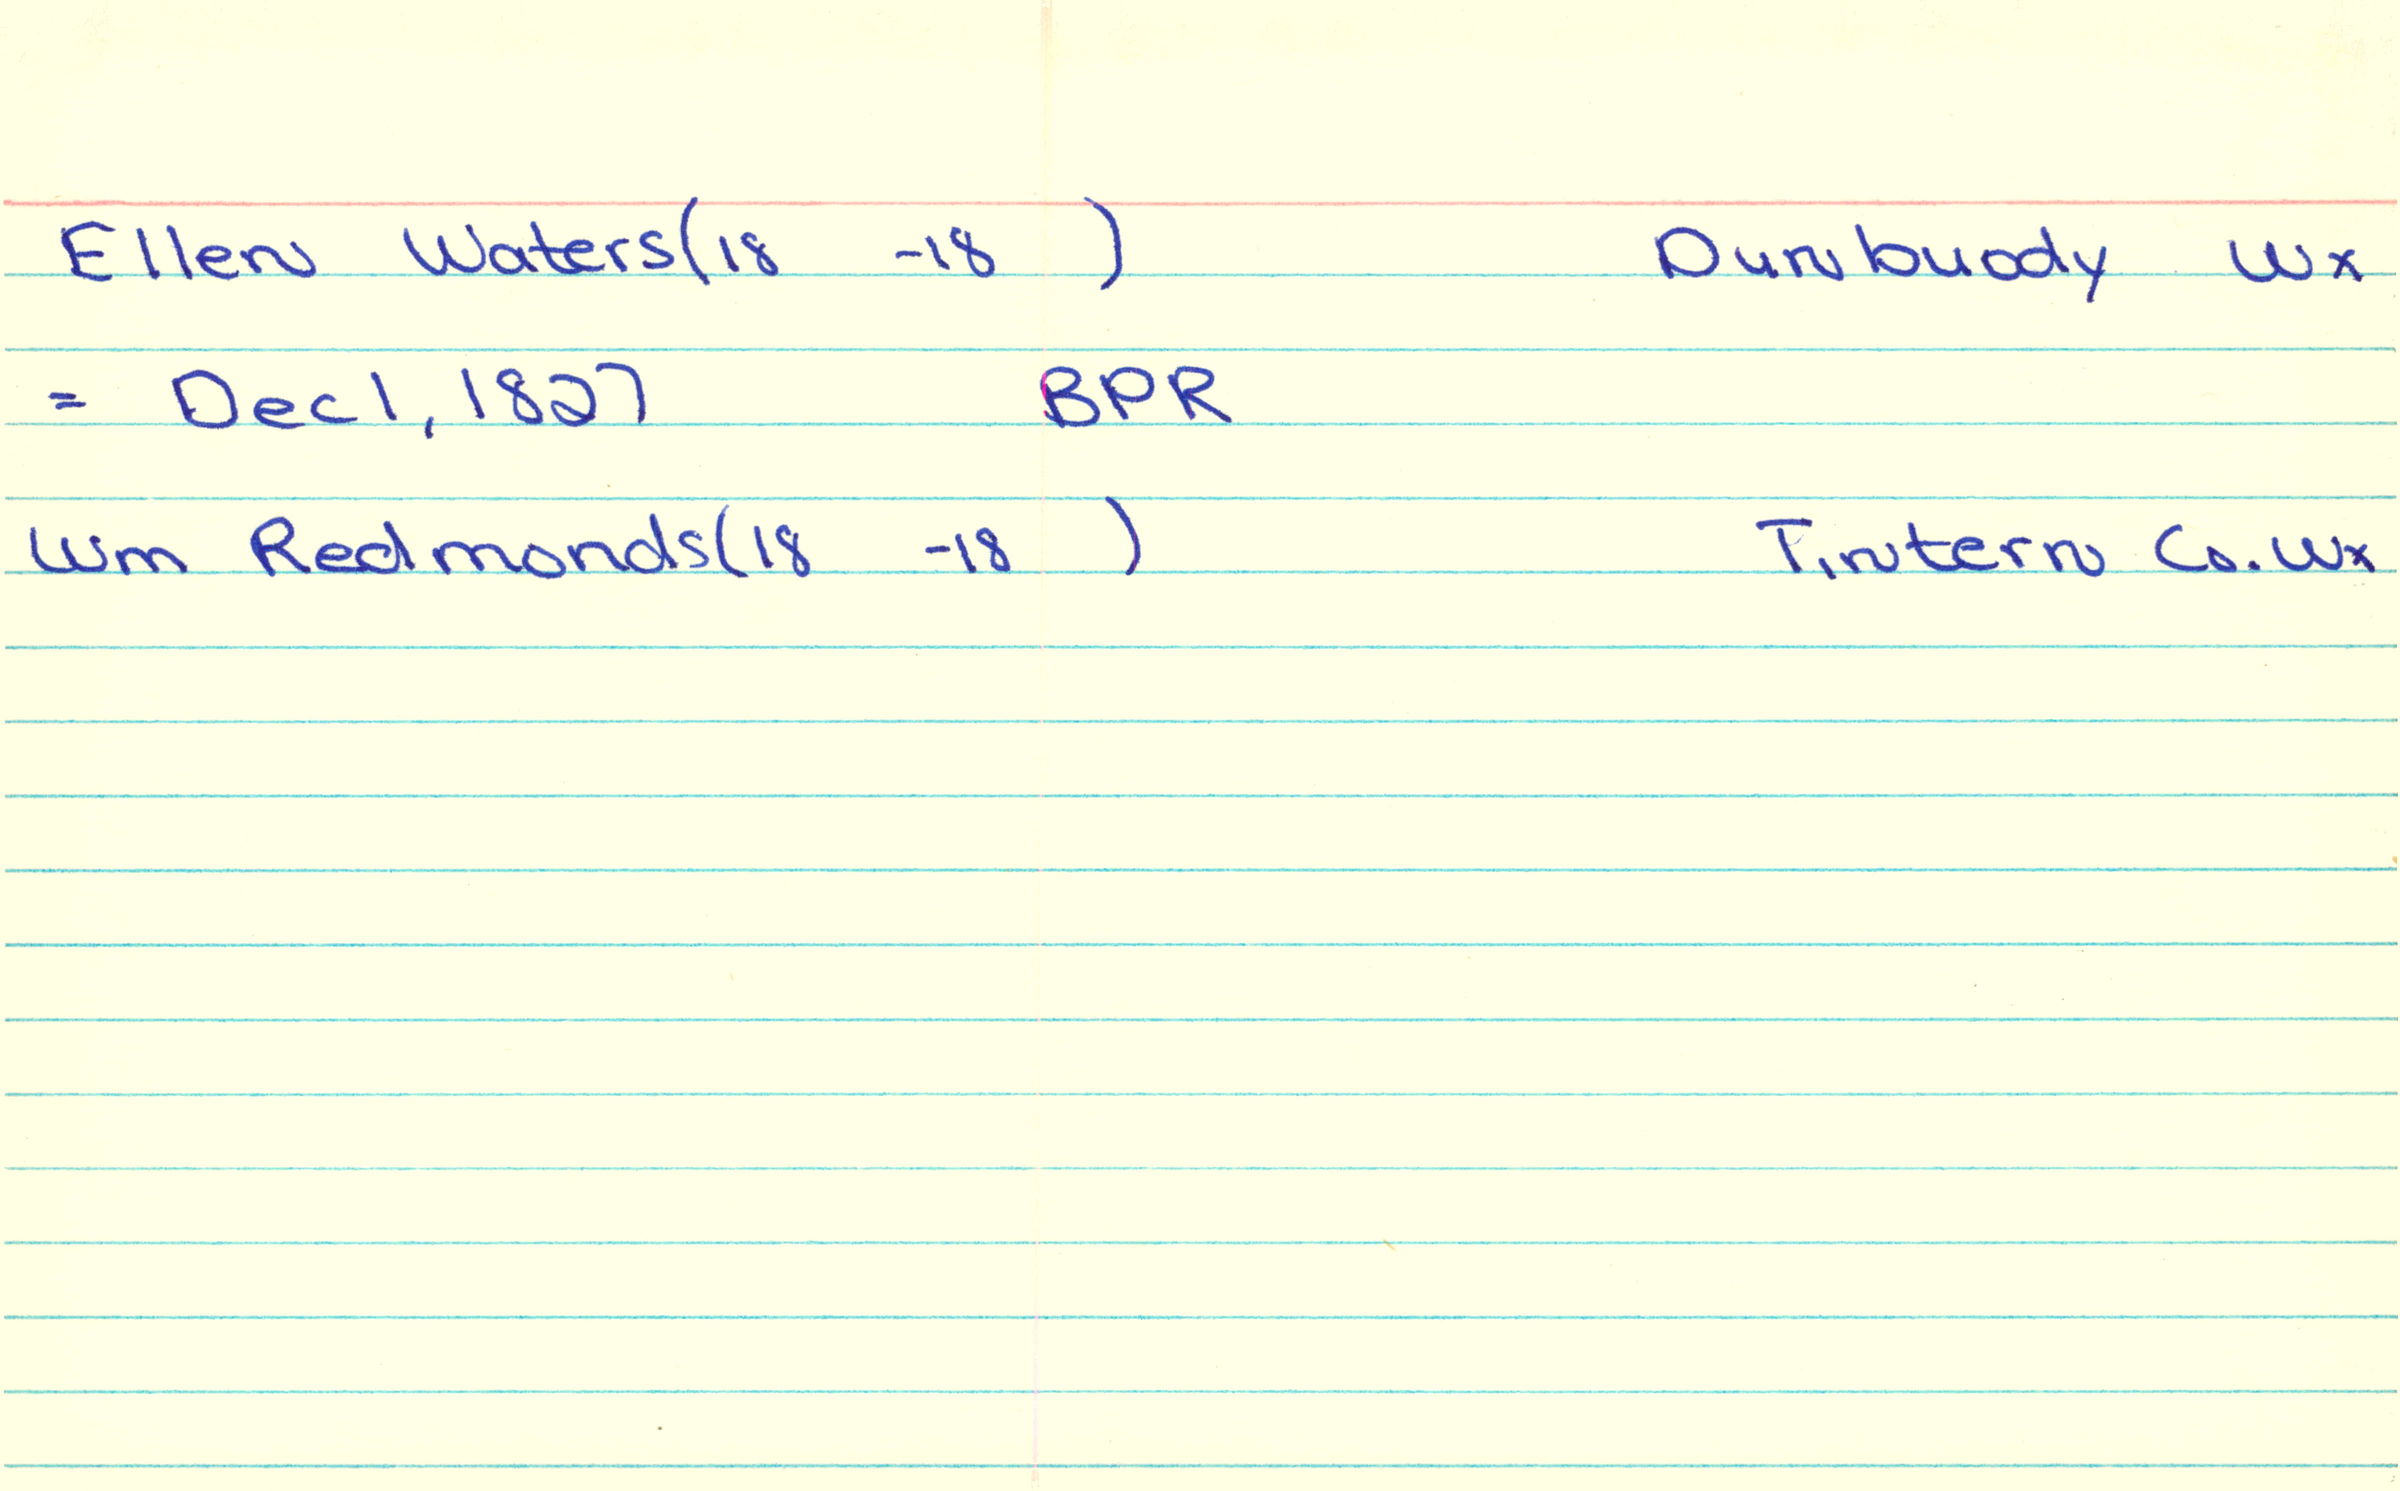 Ellen Waters(18 -18 ) Dunbuody Wx
= Dec 1, 1827 BPR
Wm Redmonds(18 -18 ) Tintern Co. Wx